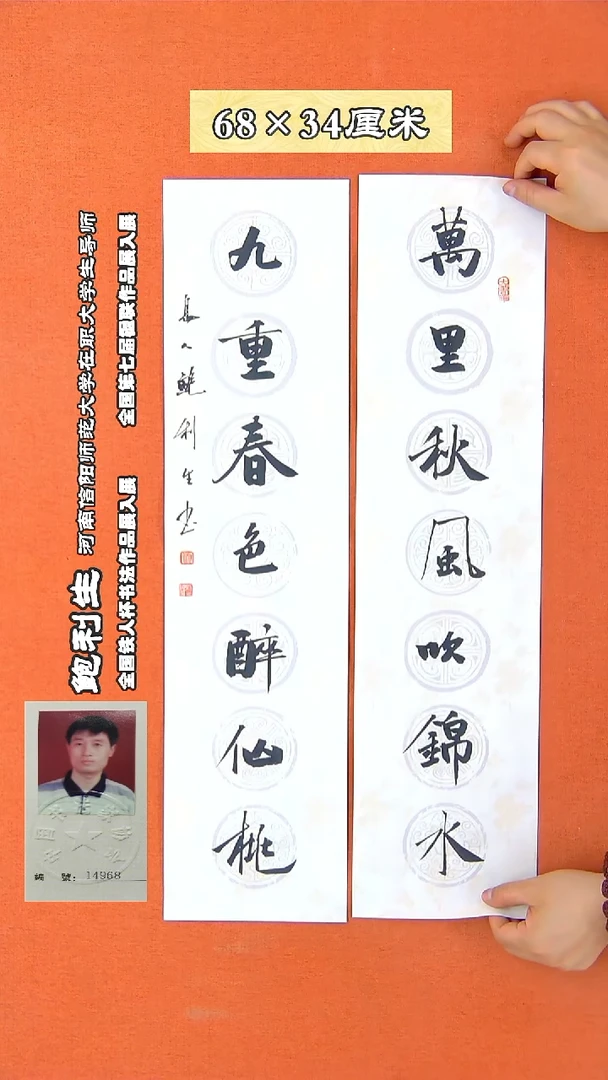 68×34厘米
萬里秋風吹錦水
九重春色醉仙桃
長人鲍利生书
鲍利生 河南信阳师范大学在职大学生导师
全国铁人杯书法作品展入展 全国第七届楹联作品展入展
編 號: 14968